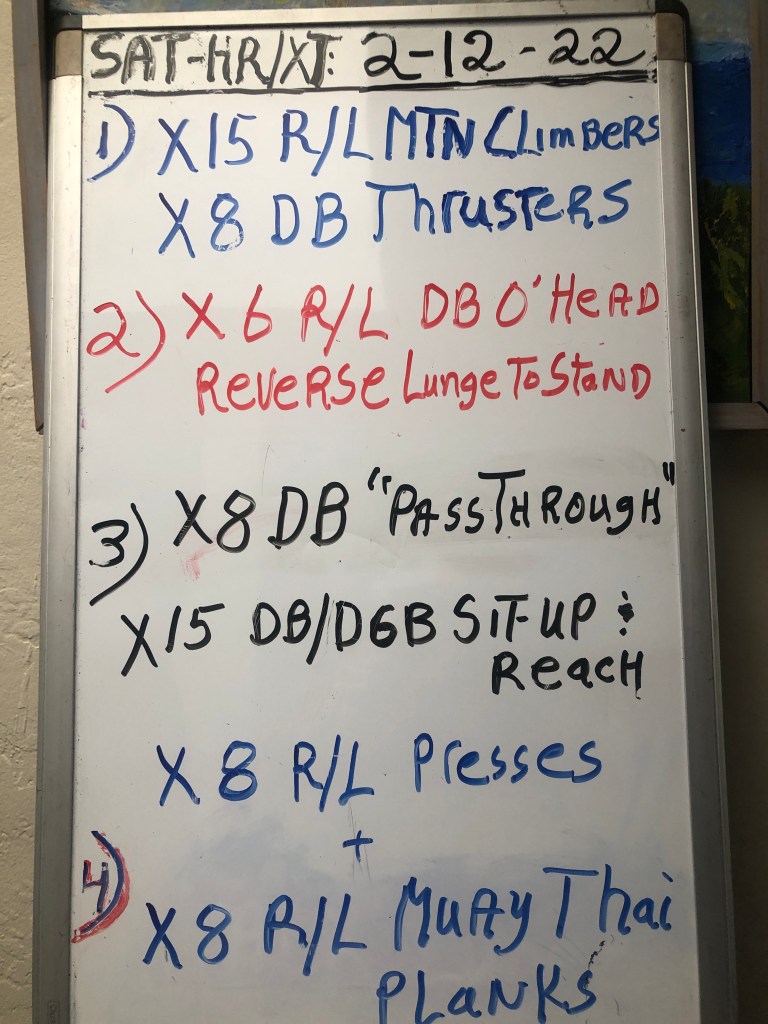 SAT-HR/XT: 2-12-22
1) X15 R/L MTN CLIMBERS
X8 DB THRUSTERS
2) X 6 R/L DB O'HEAD
REVERSE LUNGE TO STAND
3) X8 DB "PASS THROUGH"
X15 DB/DGB SIT-UP &
REACH
X 8 R/L PRESSES
+
4) X8 R/L MUAY THAI
PLANKS